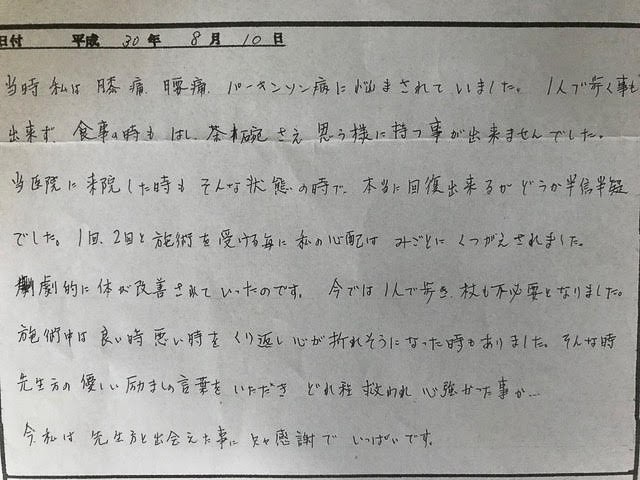 日付 平成 30 年 8 月 10 日
当時私は 膝痛、腰痛、パーキンソン病に悩まされていました。 1人で歩く事も
出来ず 食事の時も はし、茶碗さえ 思う様に持つ事が出来ませんでした。
当医院に来院した時も そんな状態の時で、本当に回復出来るかどうか半信半疑
でした。1回、2回と施術を受ける毎に私の心配は みごとに くつがえされました。
劇的に体が改善されていったのです。 今では1人で歩き、杖も不必要となりました。
施術中は良い時悪い時をくり返し心が折れそうになった時もありました。そんな時
先生方の優しい励ましの言葉をいただき どれ程救われ心強かった事か…
今私は 先生方と出会えた事に 感謝で いっぱいです。